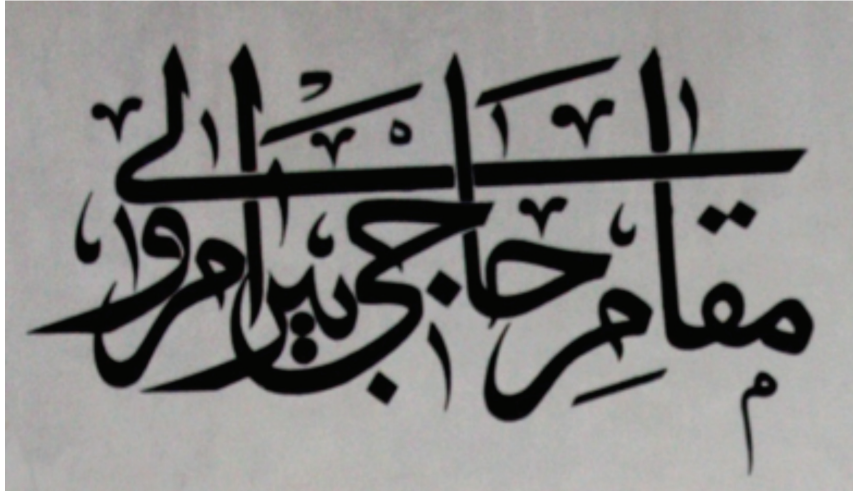 مقام حاجی بیرام ولی